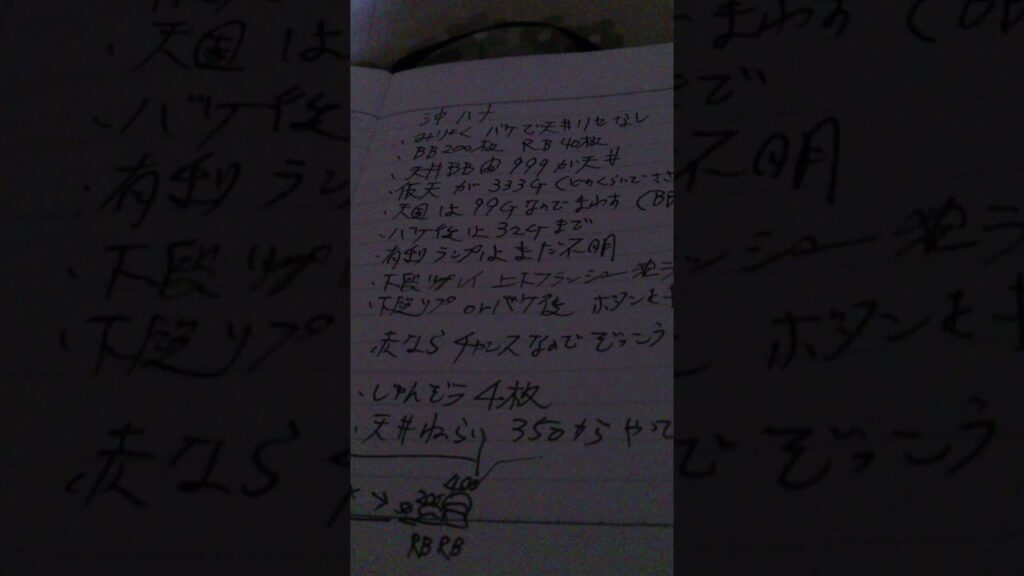 沖ハナ
・みりょく バケで天井リセなし
・BB200枚 RB40枚
・天井BB間999が天井
・仮天が333G
・天国は99Gなのでまわす (BB
・バケ後は32Gまで
・有利ランプはまだ不明
・下段リプレイ 上下フラッシュ
・下段リプ orバケ後 ボタンを
赤ならチャンスなのでぞっこう
・じゅんぞう 4枚
・天井ねらい 350からやって
400
200
RB RB